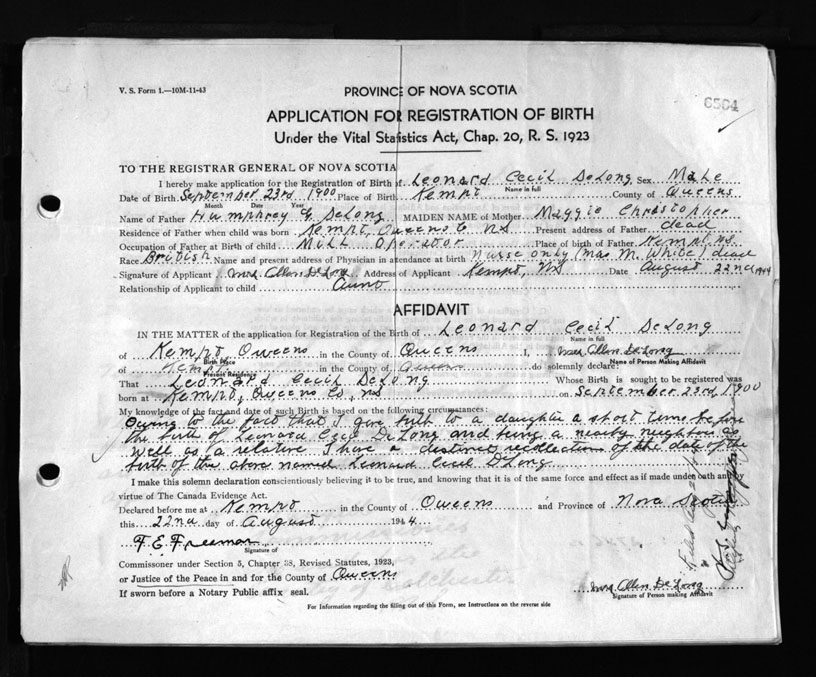 V. S. Form 1.—10M-11-43
PROVINCE OF NOVA SCOTIA
6564
APPLICATION FOR REGISTRATION OF BIRTH
Under the Vital Statistics Act, Chap. 20, R. S. 1923
TO THE REGISTRAR GENERAL OF NOVA SCOTIA
I hereby make application for the Registration of Birth of Leonard Cecil DeLong Sex Male
Name in full
Date of Birth September 23rd 1900 Place of Birth Kempt County of Queens
Month Date Year
Name of Father Humphrey DeLong MAIDEN NAME of Mother Maggie Christopher
Residence of Father when child was born Kempt, Queens Co NS Present address of Father dead
Occupation of Father at Birth of child Mill Operator Place of Birth of Father Kempt, NS.
Race British Name and present address of Physician in attendance at birth Nurse only (Mrs M. White) dead
Signature of Applicant Mrs. Allen DeLong Address of Applicant Kempt, NS Date August 22nd 1944
Relationship of Applicant to child Aunt
AFFIDAVIT
IN THE MATTER of the application for Registration of the Birth of Leonard Cecil DeLong
Name in full
of Kempt, Queens in the County of Queens I, Mrs Allen DeLong
Birth Place Name of Person Making Affidavit
of Kempt in the County of Queens do solemnly declare:
Present Residency
That Leonard Cecil DeLong Whose Birth is sought to be registered was
born at Kempt, Queens Co, NS on September 23rd 1900
My knowledge of the fact and date of such Birth is based on the following circumstances:
Owing to the fact that I give birth to a daughter a short time before
the birth of Leonard Cecil DeLong and being a nearby neighbor as
well as a relative I have a distinct recollection of the date of the
birth of the above named Leonard Cecil DeLong
I make this solemn declaration conscientiously believing it to be true, and knowing that it is of the same force and effect as if made under oath and by
virtue of The Canada Evidence Act.
Declared before me at Kempt in the County of Queens and Province of Nova Scotia
this 22nd day of August 1944
F. E. Freeman
Signature of
Commissioner under Section 5, Chapter 38, Revised Statutes, 1923,
or Justice of the Peace in and for the County of Queens
If sworn before a Notary Public affix seal.
Mrs Allen DeLong
Signature of Person making Affidavit
For Information regarding the filling out of this Form, see Instructions on the reverse side